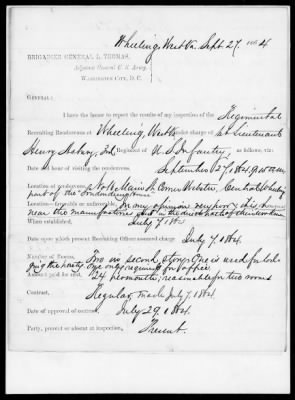 Wheeling, West Va. Sept 27, 1864
BRIGADIER GENERAL L. THOMAS,
Adjutant General U. S. Army,
WASHINGTON CITY, D. C.
GENERAL:
I have the honor to report the results of my inspection of the Regimental
Recruiting Rendezvous at Wheeling, West Va. under charge of 1st Lieutenant
Henry 2nd, Regiment of U.S. Infantry, as follows, viz:
Date and hour of visiting the rendezvous, September 27, 1864, 9.15 a.m.
Location of rendezvous, No 10 Main St. Corner Webster, Central
part of the
Location—favorable or unfavorable, In my opinion very poor,
near the manufactories and in the
When established, July 7 1864
Date upon which present Recruiting Officer assumed charge July 7, 1864.
Number of Rooms, Two in second story. One is used for lod-
ging the party, one only required for office.
Amount paid for rent, 24 per month; reasonable for two rooms
Contract, Regular, made July 7, 1864.
Date of approval of contract, July 29, 1864.
Party, present or absent at inspection, Present.